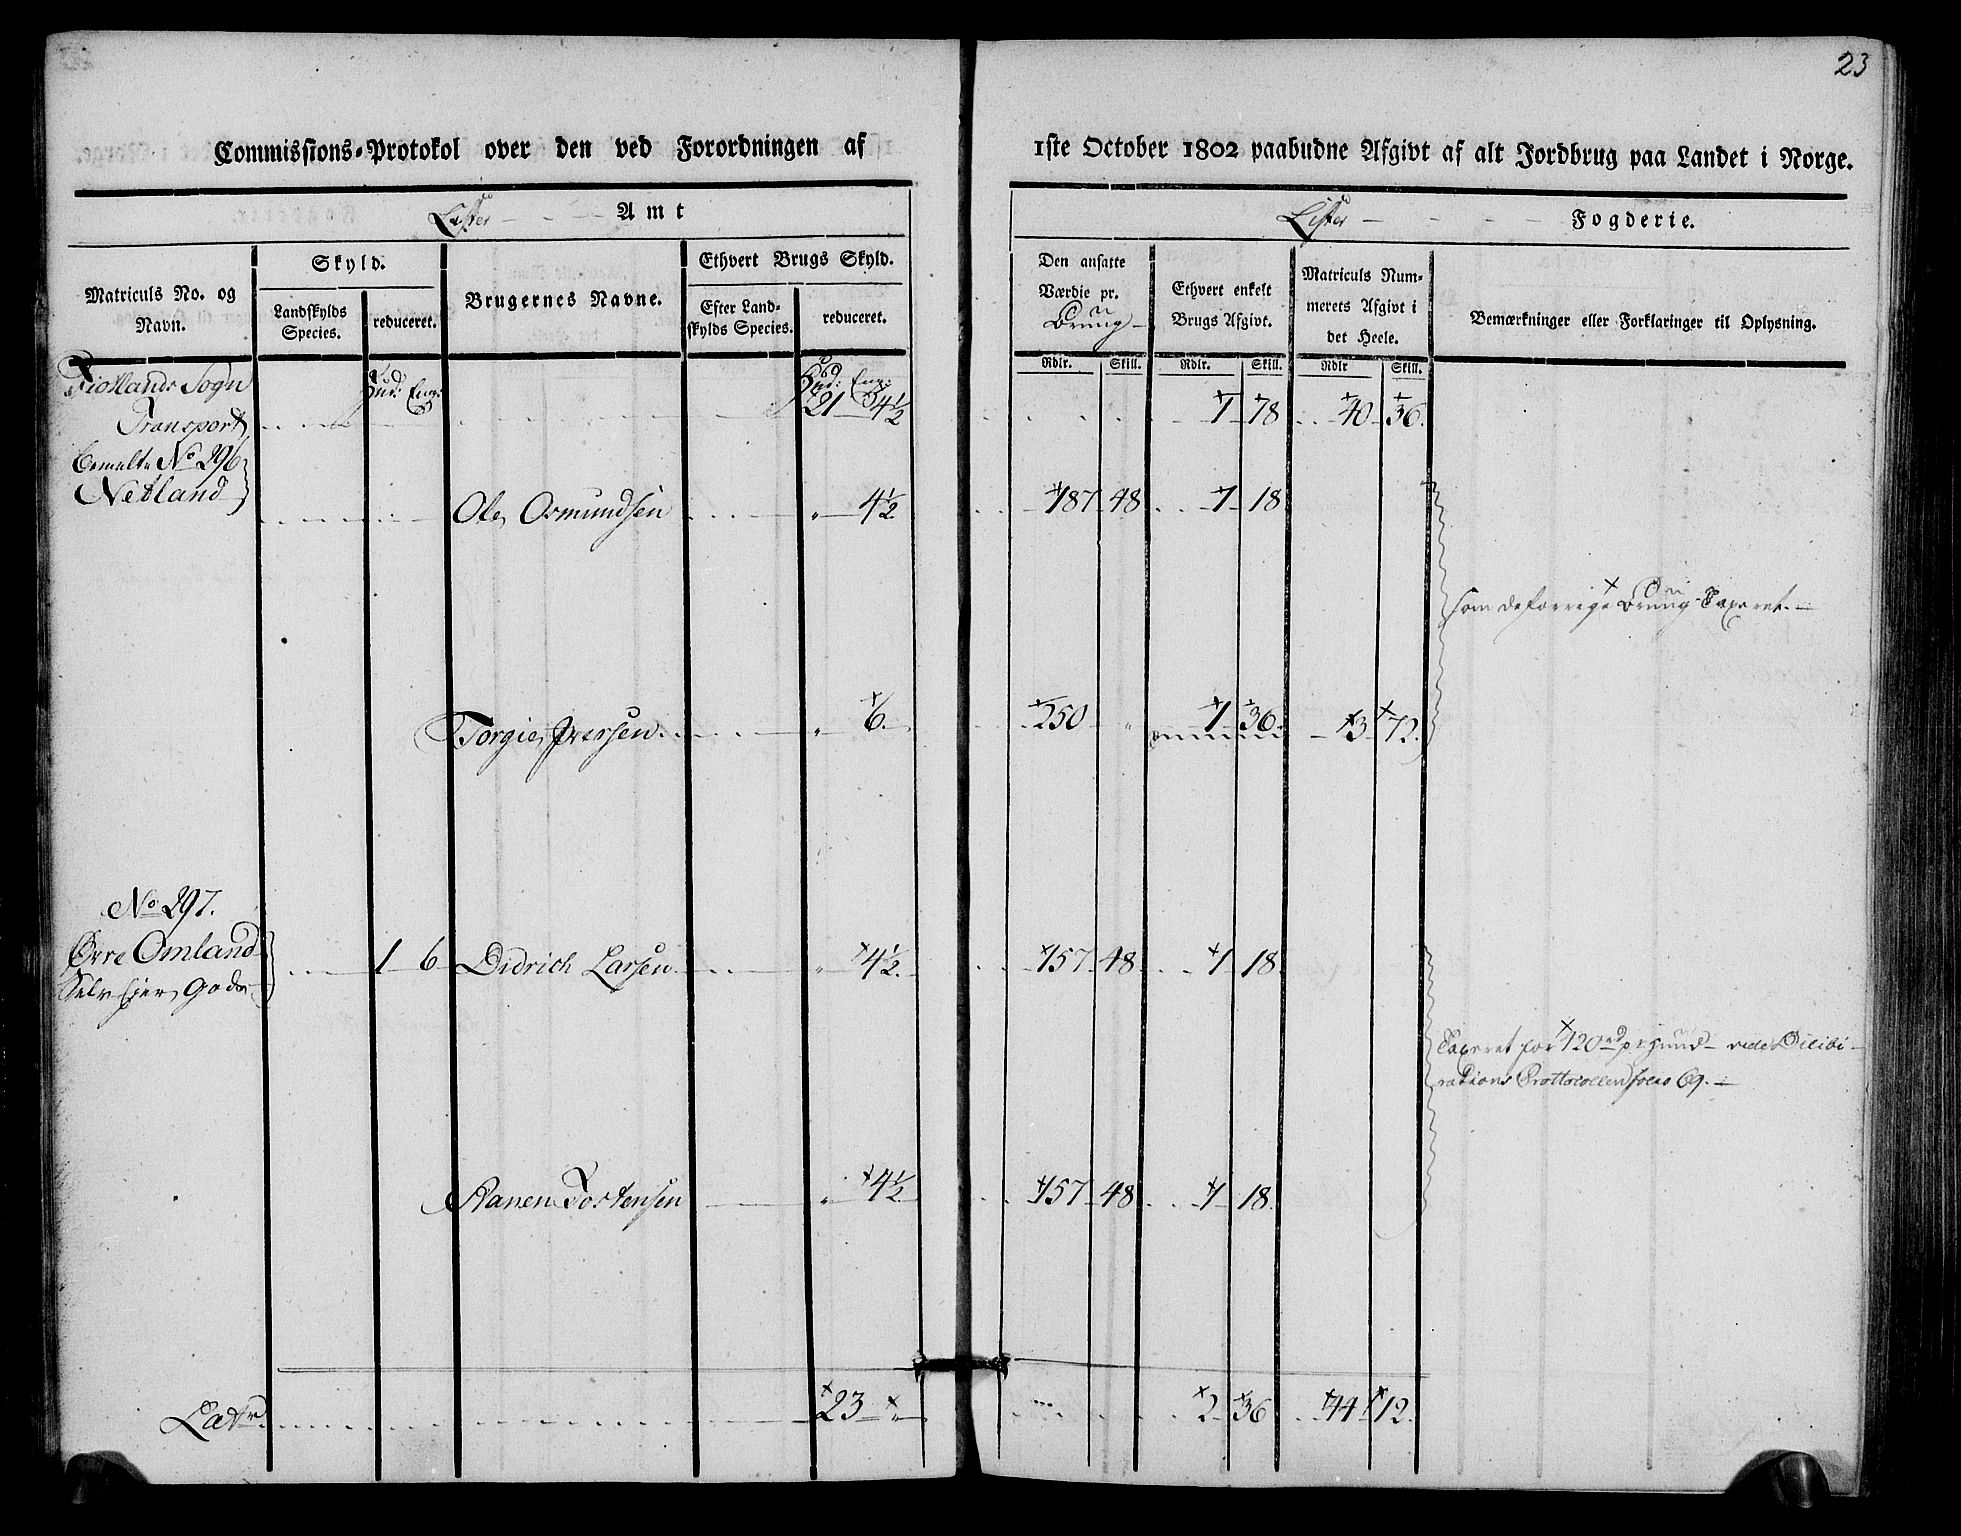 23
Commissions-Protokol over den ved Forordningen af 1ste October 1802 paabudne Afgivt af alt Jordbrug paa Landet i Norge.
Lister Amt
Lister Fogderie.
Matriculs No. og Navn.
Skyld.
Landskylds Species.
reduceret.
Brugernes Navne.
Ethvert Brugs Skyld.
Efter Landskylds Species.
reduceret.
Den ansatte Værdie pr. Bruug
Ethvert enkelt Brugs Afgivt.
Matriculs Nummerets Afgivt i det Heele.
Bemærkninger eller Forklaringer til Oplysning.
Rdlr. Skill. Rdlr. Skill. Rdlr Skill.
Fiotlands Sogn Hud: Eng: Hud: Eng:
Transport 21 3 4½ 1 78 40 36.
No 296
Netland Ole Osmundsen " 4½ 187 48 1 18
som de forrige Bruug Taxeret.
Torgie Iversen. " 6. 250 " 1 36. 3 72.
No 297.
Øvre Omland 1 6 Didrich Larsen " 4½. 157 48 1 18
Selv Ejer Gods
Taxeret for 120 rd pr Huud vide Delibe-
rations Prottocollen folio 69.
Aanen Tostensen " 4½ 157 48 1 18.
Latr. 23 " 2 36 44 12.